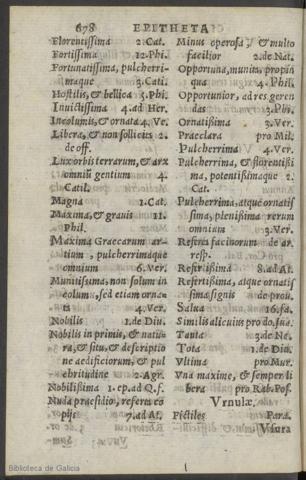 678 EPITHETA
Florentissima 2. Cat.
Fortissima 12. Phi.
Fortunatissima, pulcherri-
maque 3. Cati.
Hostilis, & bellica 5. Phi.
Invictissima 4. ad Her.
Incolumis, & ornata 4. Ve.
Libera, & non sollicita 2.
de off.
Lux orbis terrarum, & arx
omniũ gentium 4.
Catil.
Magna 1. Cat.
Maxima, & grauis 11.
Phil.
Maxima Graecarum ar-
tium, pulcherrimaque
omnium 6. Ver.
Munitissima, non solum in
columu, sed etiam orna-
ta 4. Ver.
Nobilis 1. de Diu.
Nobilis in primis, & natu-
ra, & situ, & descriptio
ne aedificiorum, & pul
chritudine 2. Agr.
Nobilissima 1. ep. ad Q. f.
Nuda praesidio, referta co
pijs 7. ad At.
Minus operosa, & multo
facilior 2. de Nat.
Opportuna, munita, propin
qua 4. Phil.
Opportunior, ad res geren
das 2. Phi.
Ornatissima 3. Ver.
Praeclara pro Mil.
Pulcherrima 4. Ver.
Pulcherrima, & florentissi
ma, potentissimaque 2.
Cat.
Pulcherrima, atque ornatis
sima, plenissima rerum
omnium 3. Ver.
Referes facinorum de ar.
resp.
Refertissima 8. ad At.
Refertissima, atque ornatis
sima signis de prou.
Salua 16. fa.
Similis alicuius pro do. sua.
Tanta 3. de Na.
Tota 1. de Diu.
Vltima pro Mur.
Vna maxime, & semper li
bera pro Rab. Pos.
Vrnulæ.
Fictiles Para.
Vsura
Biblioteca de Galicia